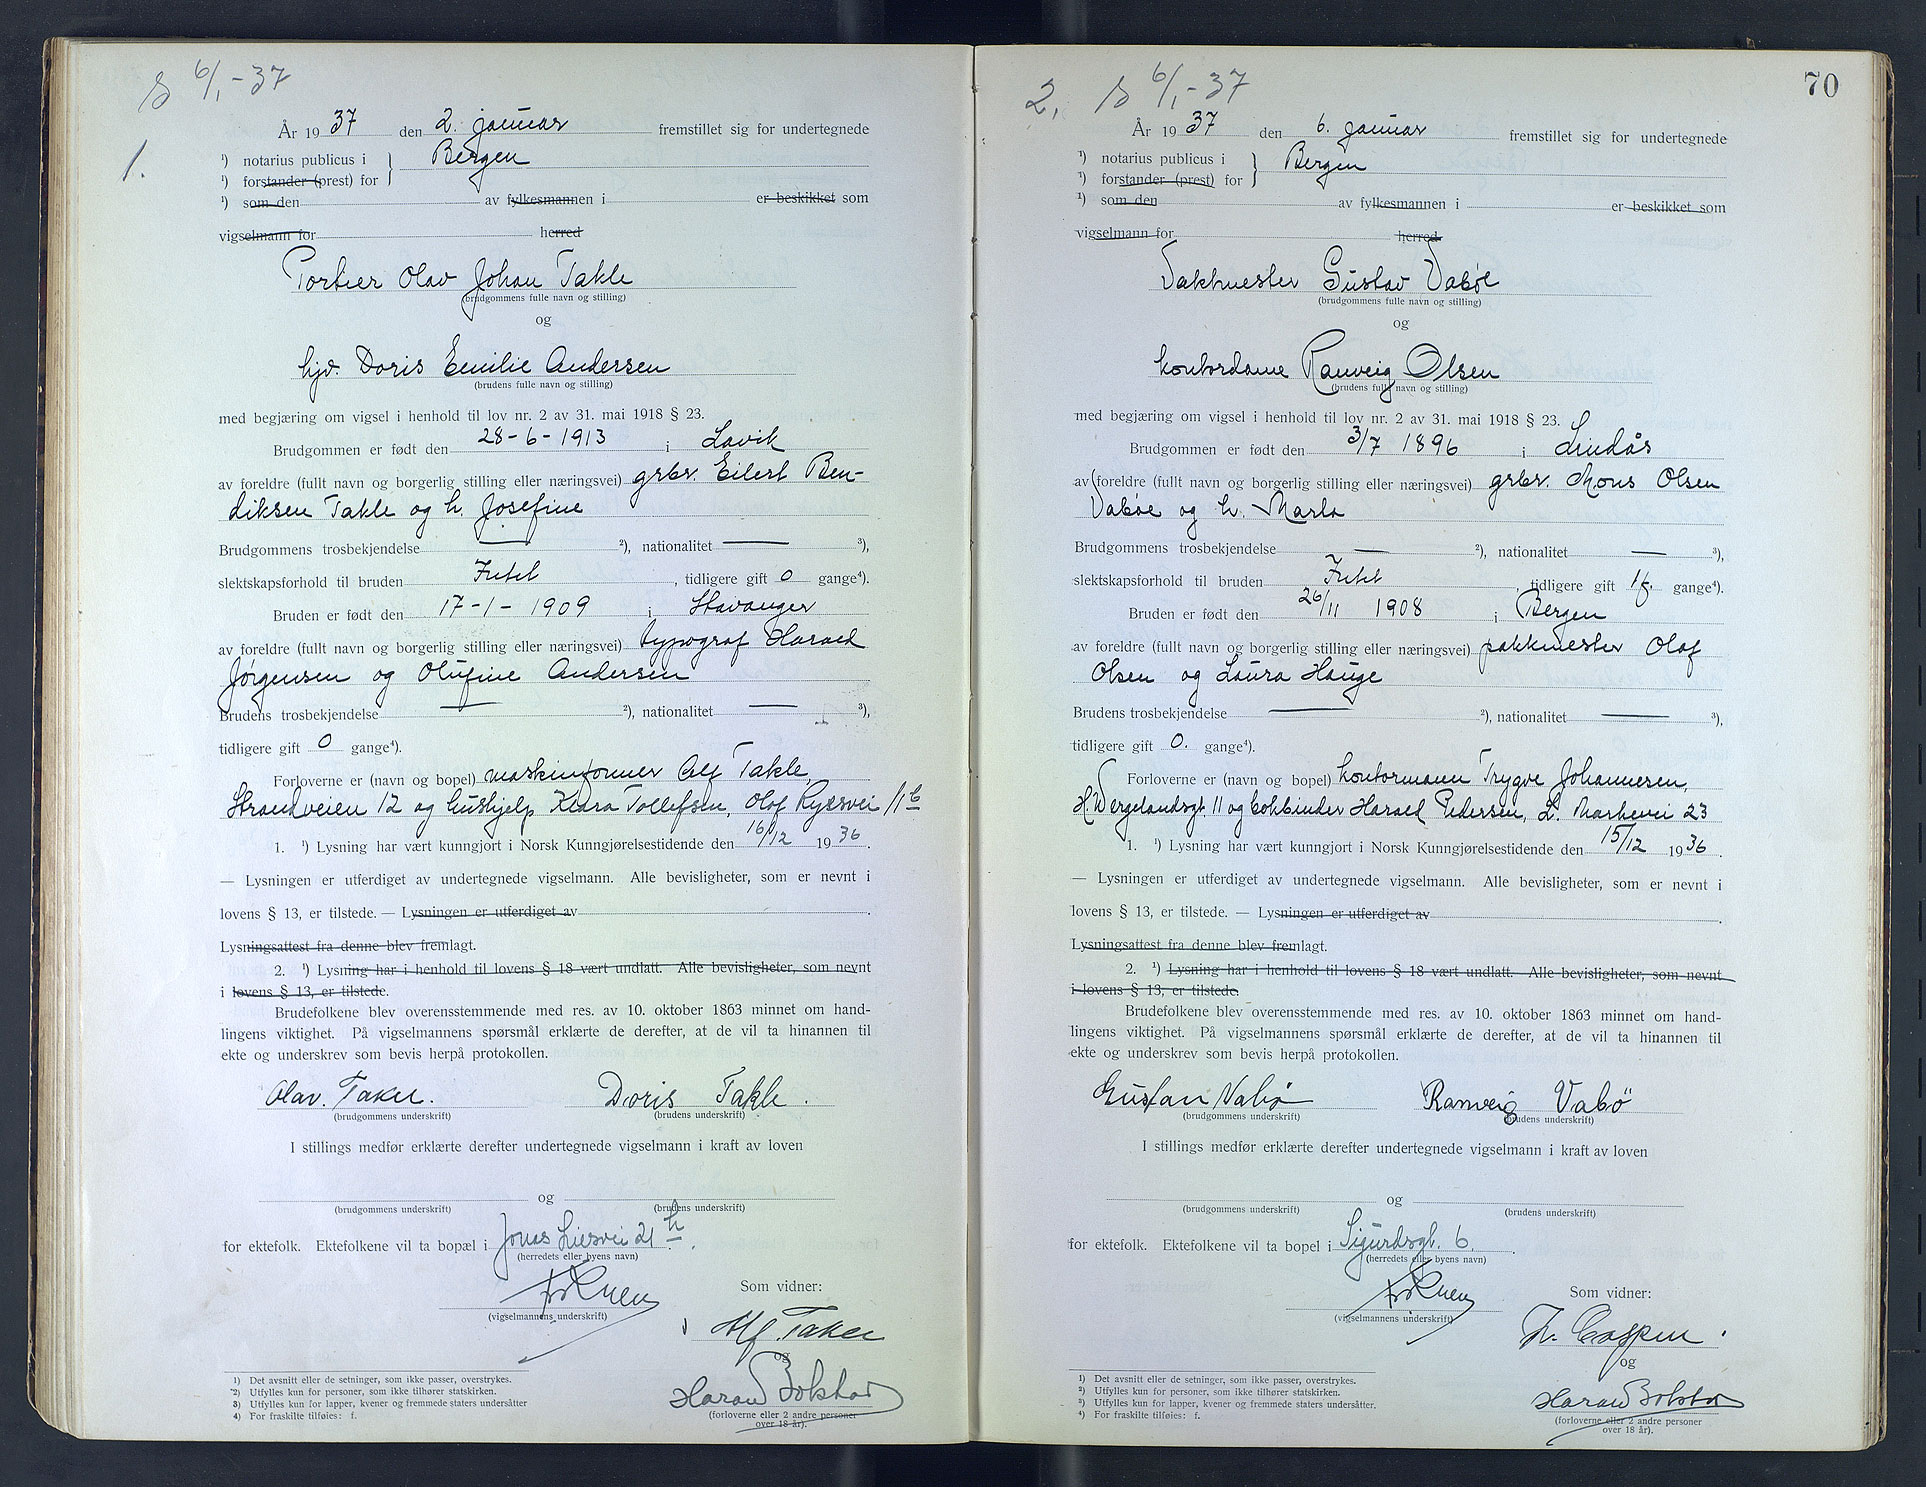 6/1-37
1.
År 1937 den 2. januar fremstillet sig for undertegnede
¹) notarius publicus i } Bergen
¹) forstander (prest) for
¹) som den av fylkesmannen i er beskikket som
vigselmann for herred
Portier Olav Johan Takle
(brudgommens fulle navn og stilling)
og
hjd. Doris Emilie Andersen
(brudens fulle navn og stilling)
med begjæring om vigsel i henhold til lov nr. 2 av 31. mai 1918 § 23.
Brudgommen er født den 28-6-1913 i Lavik
av foreldre (fullt navn og borgerlig stilling eller næringsvei) grbr. Eilert Ben-
diksen Takle og h. Josefine
Brudgommens trosbekjendelse — ²), nationalitet — ³),
slektskapsforhold til bruden Intet, tidligere gift 0 gange⁴).
Bruden er født den 17-1-1909 i Stavanger
av foreldre (fullt navn og borgerlig stilling eller næringsvei) typograf Harald
Jørgensen og Olufine Andersen
Brudens trosbekjendelse — ²), nationalitet — ³),
tidligere gift 0 gange⁴).
Forloverne er (navn og bopel) maskinformer Alf Takle,
Strandveien 12 og hushjelp Klara Tollefsen, Olaf Ryesvei 11 b
1. ¹) Lysning har vært kunngjort i Norsk Kunngjørelsestidende den 16/12 1936.
— Lysningen er utferdiget av undertegnede vigselmann. Alle bevisligheter, som er nevnt i
lovens § 13, er tilstede. — Lysningen er utferdiget av .
Lysningsattest fra denne blev fremlagt.
2. ¹) Lysning har i henhold til lovens § 18 vært undlatt. Alle bevisligheter, som nevnt
i lovens § 13, er tilstede.
Brudefolkene blev overensstemmende med res. av 10. oktober 1863 minnet om hand-
lingens viktighet. På vigselmannens spørsmål erklærte de derefter, at de vil ta hinannen til
ekte og underskrev som bevis herpå protokollen.
Olav. Takle. Doris Takle.
(brudgommens underskrift) (brudens underskrift)
I stillings medfør erklærte derefter undertegnede vigselmann i kraft av loven
og
(brudgommens underskrift) (brudens underskrift)
for ektefolk. Ektefolkene vil ta bopæl i Jonas Liesvei 21 h.
(herredets eller byens navn)
Som vidner:
(vigselmannens underskrift)
Alf. Takle
og
Harald Bolstad
(forloverne eller 2 andre personer
over 18 år).
1) Det avsnitt eller de setninger, som ikke passer, overstrykes.
2) Utfylles kun for personer, som ikke tilhører statskirken.
3) Utfylles kun for lapper, kvener og fremmede staters undersåtter
4) For fraskilte tilføies: f.
70
2. 6/1-37
År 1937 den 6. januar fremstillet sig for undertegnede
¹) notarius publicus i } Bergen
¹) forstander (prest) for
¹) som den av fylkesmannen i er beskikket som
vigselmann for herred
Vaktmester Gustav Vabøe
(brudgommens fulle navn og stilling)
og
kontordame Ranveig Olsen
(brudens fulle navn og stilling)
med begjæring om vigsel i henhold til lov nr. 2 av 31. mai 1918 § 23.
Brudgommen er født den 3/7 1896 i Lindås
av foreldre (fullt navn og borgerlig stilling eller næringsvei) grbr. Mons Olsen
Vabøe og h. Marta
Brudgommens trosbekjendelse — ²), nationalitet — ³),
slektskapsforhold til bruden Intet, tidligere gift 1 f. gange⁴).
Bruden er født den 26/11 1908 i Bergen
av foreldre (fullt navn og borgerlig stilling eller næringsvei) pakkmester Olaf
Olsen og Laura Hauge
Brudens trosbekjendelse — ²), nationalitet — ³),
tidligere gift 0. gange⁴).
Forloverne er (navn og bopel) kontormann Trygve Johannesen,
H. Wergelandsgt. 11 og bokbinder Harald Pedersen, L. Markevei 23
1. ¹) Lysning har vært kunngjort i Norsk Kunngjørelsestidende den 15/12 1936.
— Lysningen er utferdiget av undertegnede vigselmann. Alle bevisligheter, som er nevnt i
lovens § 13, er tilstede. — Lysningen er utferdiget av .
Lysningsattest fra denne blev fremlagt.
2. ¹) Lysning har i henhold til lovens § 18 vært undlatt. Alle bevisligheter, som nevnt
i lovens § 13, er tilstede.
Brudefolkene blev overensstemmende med res. av 10. oktober 1863 minnet om hand-
lingens viktighet. På vigselmannens spørsmål erklærte de derefter, at de vil ta hinannen til
ekte og underskrev som bevis herpå protokollen.
Gustav Vabø Ranveig Vabö
(brudgommens underskrift) (brudens underskrift)
I stillings medfør erklærte derefter undertegnede vigselmann i kraft av loven
og
(brudgommens underskrift) (brudens underskrift)
for ektefolk. Ektefolkene vil ta bopel i Sigurdsgt. 6.
(herredets eller byens navn)
Som vidner:
(vigselmannens underskrift)
og
Harald Bolstad
(forloverne eller 2 andre personer
over 18 år).
1) Det avsnitt eller de setninger, som ikke passer, overstrykes.
2) Utfylles kun for personer, som ikke tilhører statskirken.
3) Utfylles kun for lapper, kvener og fremmede staters undersåtter.
4) For fraskilte tilføies: f.